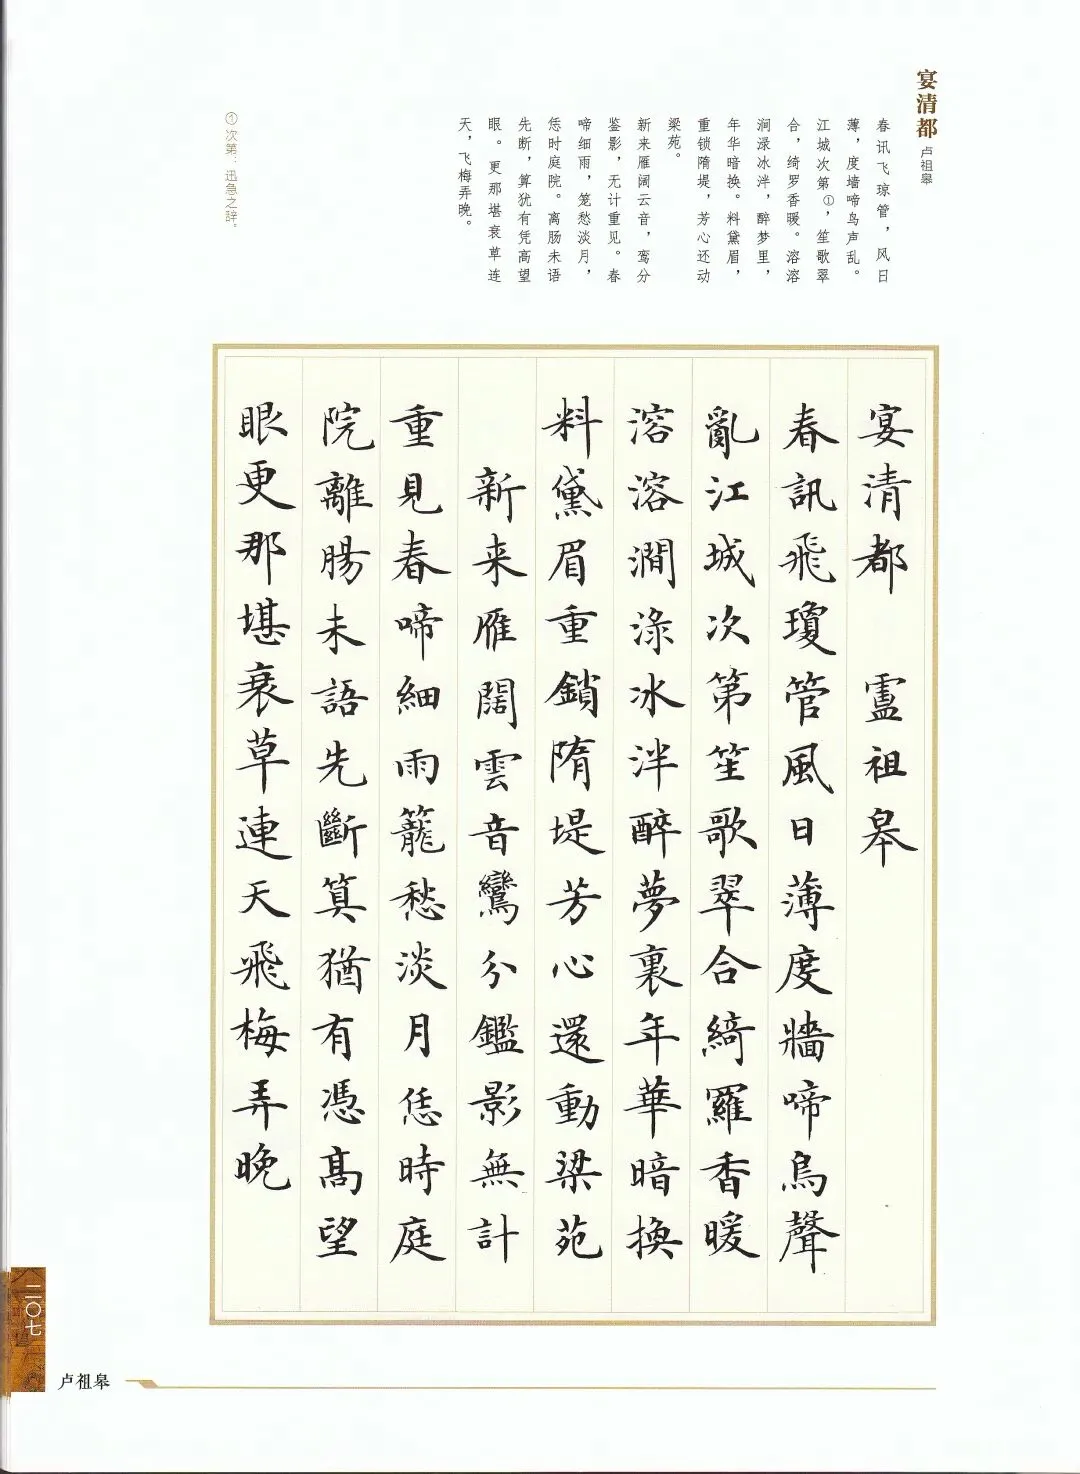 宴清都
卢祖皋
春讯飞琼管，风日
薄，度墙啼鸟声乱。
江城次第①，笙歌翠
合，绮罗香暖。溶溶
涧渌冰泮，醉梦里，
年华暗换。料黛眉，
重锁隋堤，芳心还动
梁苑。
新来雁阔云音，鸾分
鉴影，无计重见。春
啼细雨，笼愁淡月，
恁时庭院。离肠未语
先断，算犹有凭高望
眼。更那堪衰草连
天，飞梅弄晚。
①次第：迅急之辞。
宴清都 盧祖皋
春訊飛瓊管風日薄度牆啼烏聲
亂江城次第笙歌翠合綺羅香暖
溶溶澗淥冰泮醉夢裏年華暗換
料黛眉重鎖隋堤芳心還動梁苑
新来雁闊雲音鸞分鑑影無計
重見春啼細雨籠愁淡月恁時庭
院離腸未語先斷算猶有憑高望
眼更那堪衰草連天飛梅弄晚
二〇七
卢祖皋